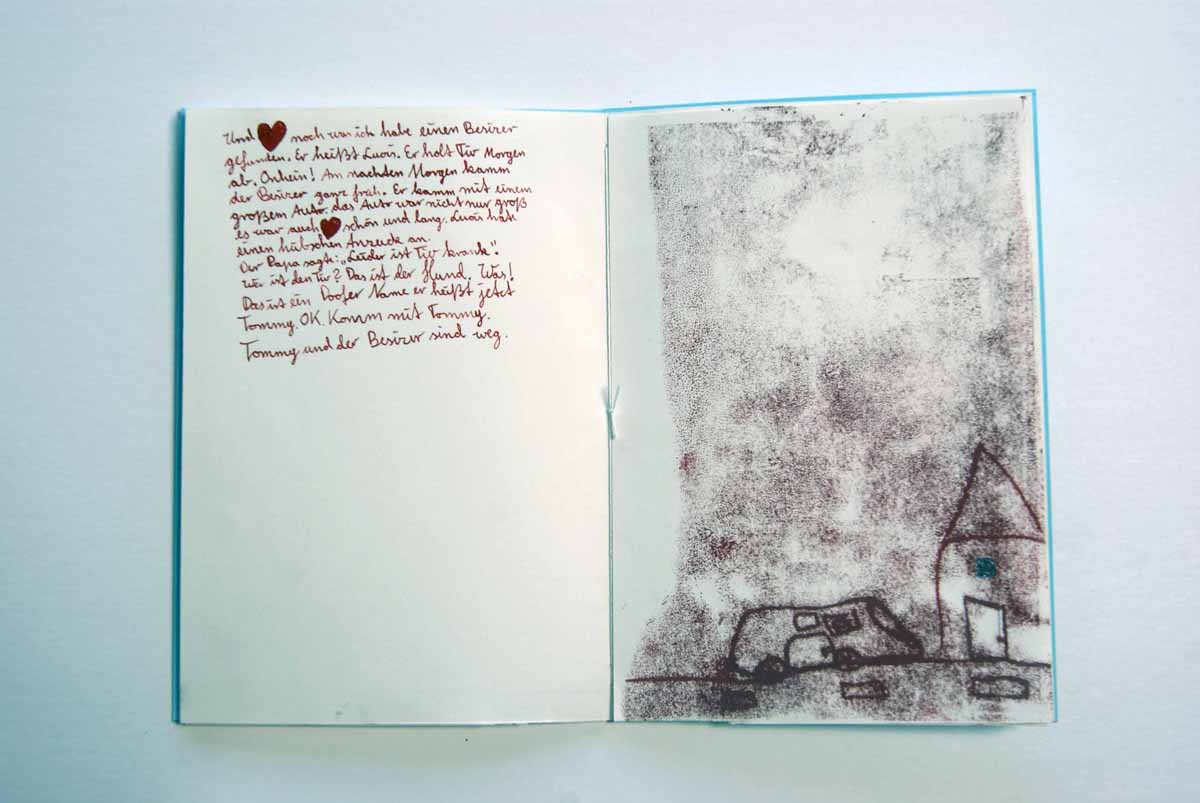 Und ♥ noch was ich habe einen Besizer
gefunden. Er heißt Luois. Er holt Tiv Morgen
ab. Onhein! Am nachsten Morgen kamm
der Besizer ganz früh. Er kamm mit einem
großem Auto. das Auto war nicht nur groß
es war auch ♥ schön und lang. Luois hat
einen hübschen Anzuck an.
Der Papa sagte: „Leider ist Tiv krank".
Wer ist den Tiv? Das ist der Hund. Was!
Das ist ein Doofer Name er heißt jetzt
Tommy. OK. Komm mit Tommy.
Tommy und der Besizer sind weg.